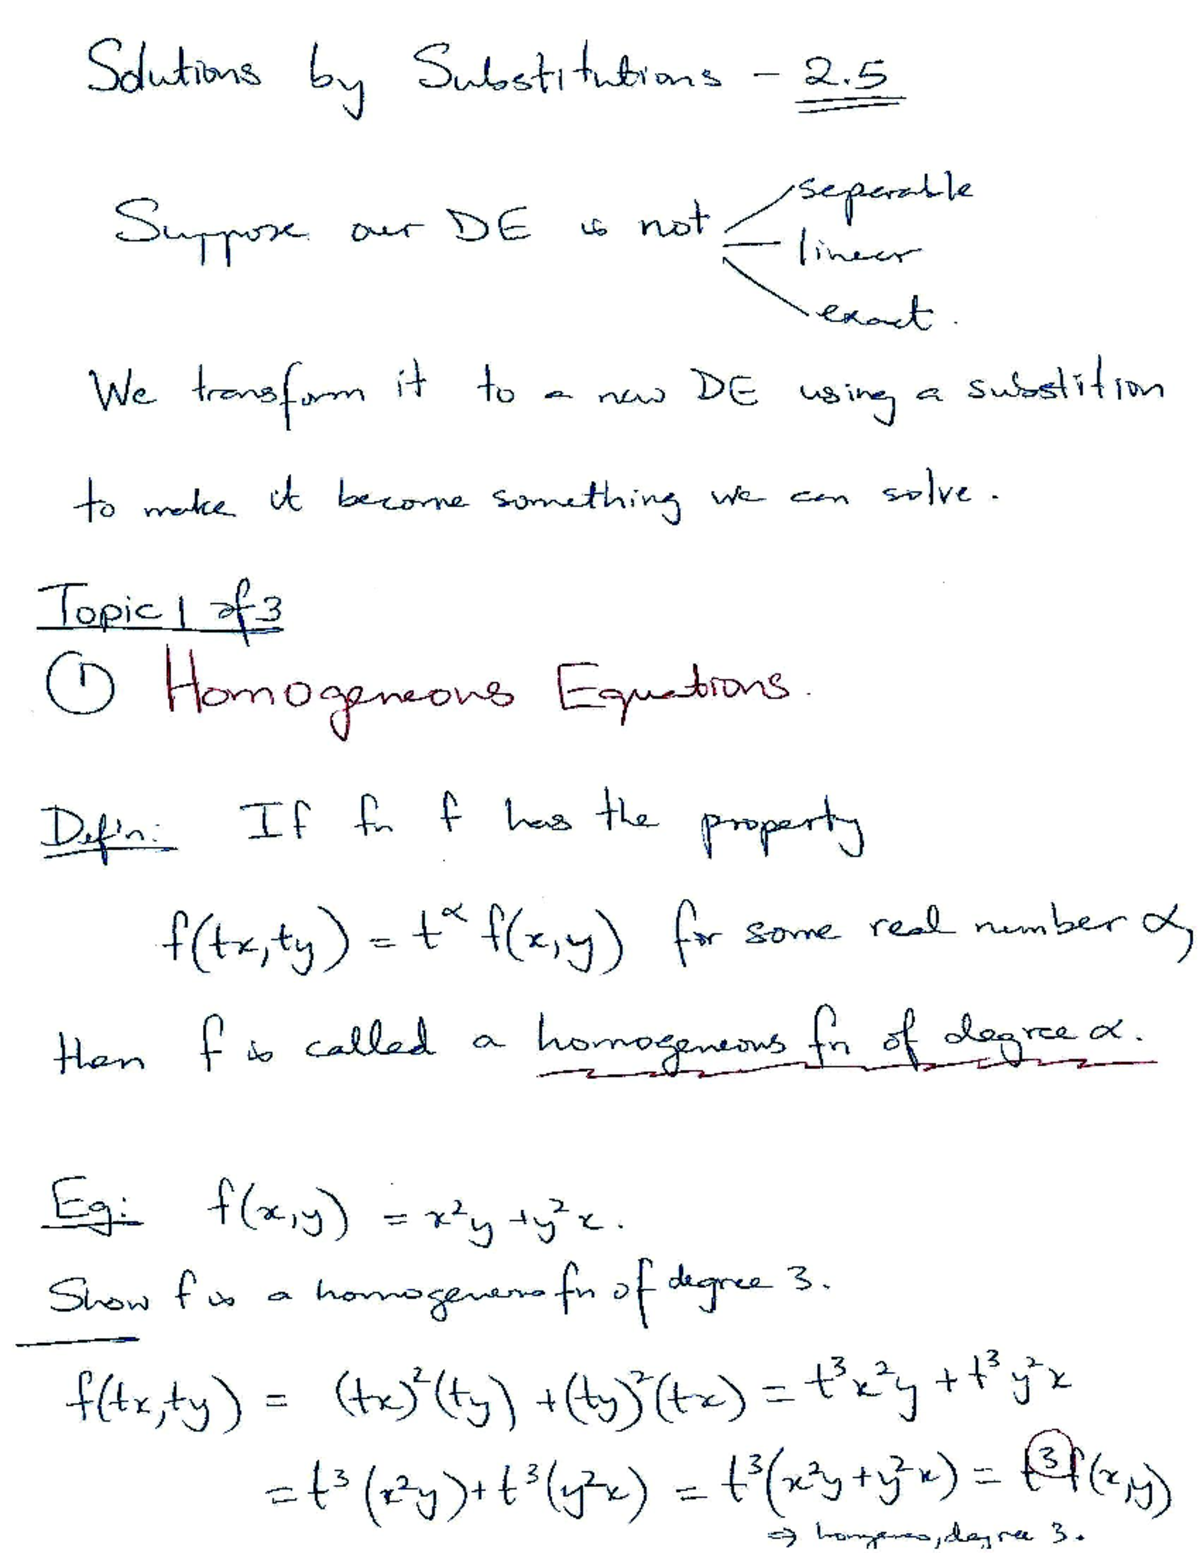 Solutions by Substitutions - 2.5
Suppose our DE is not
seperable
linear
exact.
We transform it to a new DE using a substition
to make it become something we can solve.
Topic 1 of 3
① Homogeneous Equations.
Def'n: If fn f has the property
f(tx,ty) = t^α f(x,y) for some real number α,
then f is called a homogeneous fn of degree α.
Eg: f(x,y) = x²y + y²x.
Show f is a homogeneous fn of degree 3.
f(tx,ty) = (tx)²(ty) + (ty)²(tx) = t³x²y + t³y²x
= t³(x²y) + t³(y²x) = t³(x²y + y²x) = t³f(x,y)
⇒ homogeneous, degree 3.